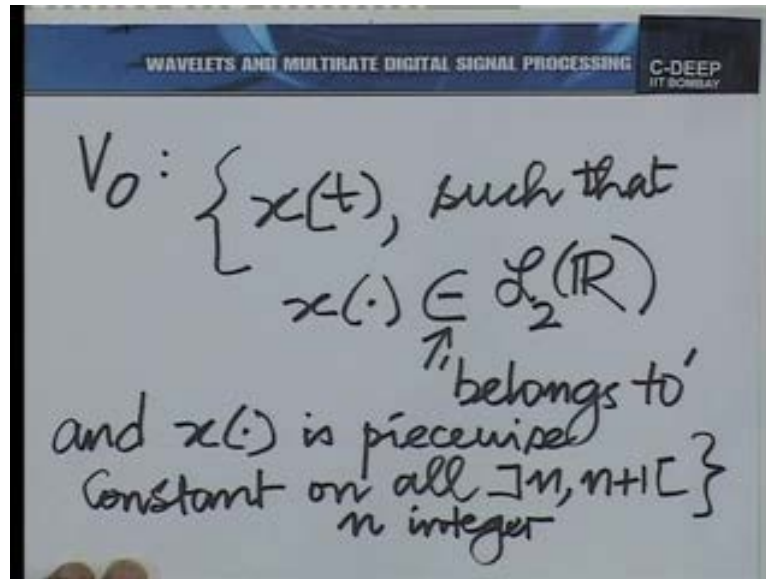 WAVELETS AND MULTIRATE DIGITAL SIGNAL PROCESSING
C-DEEP
IIT BOMBAY
V₀ : { x(t), such that
x(·) ∈ ℒ₂(ℝ)
↑ "belongs to"
and x(·) is piecewise
constant on all ]n, n+1[ }
n integer